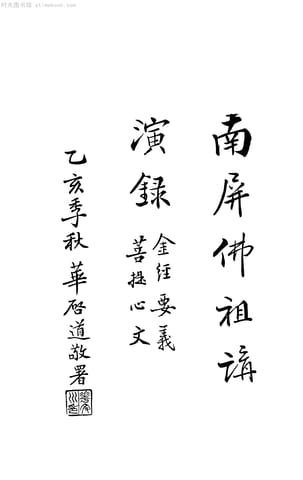 时光图书馆
南屏佛祖講
演録
金經要義
菩提心文
乙亥季秋華啓道敬署